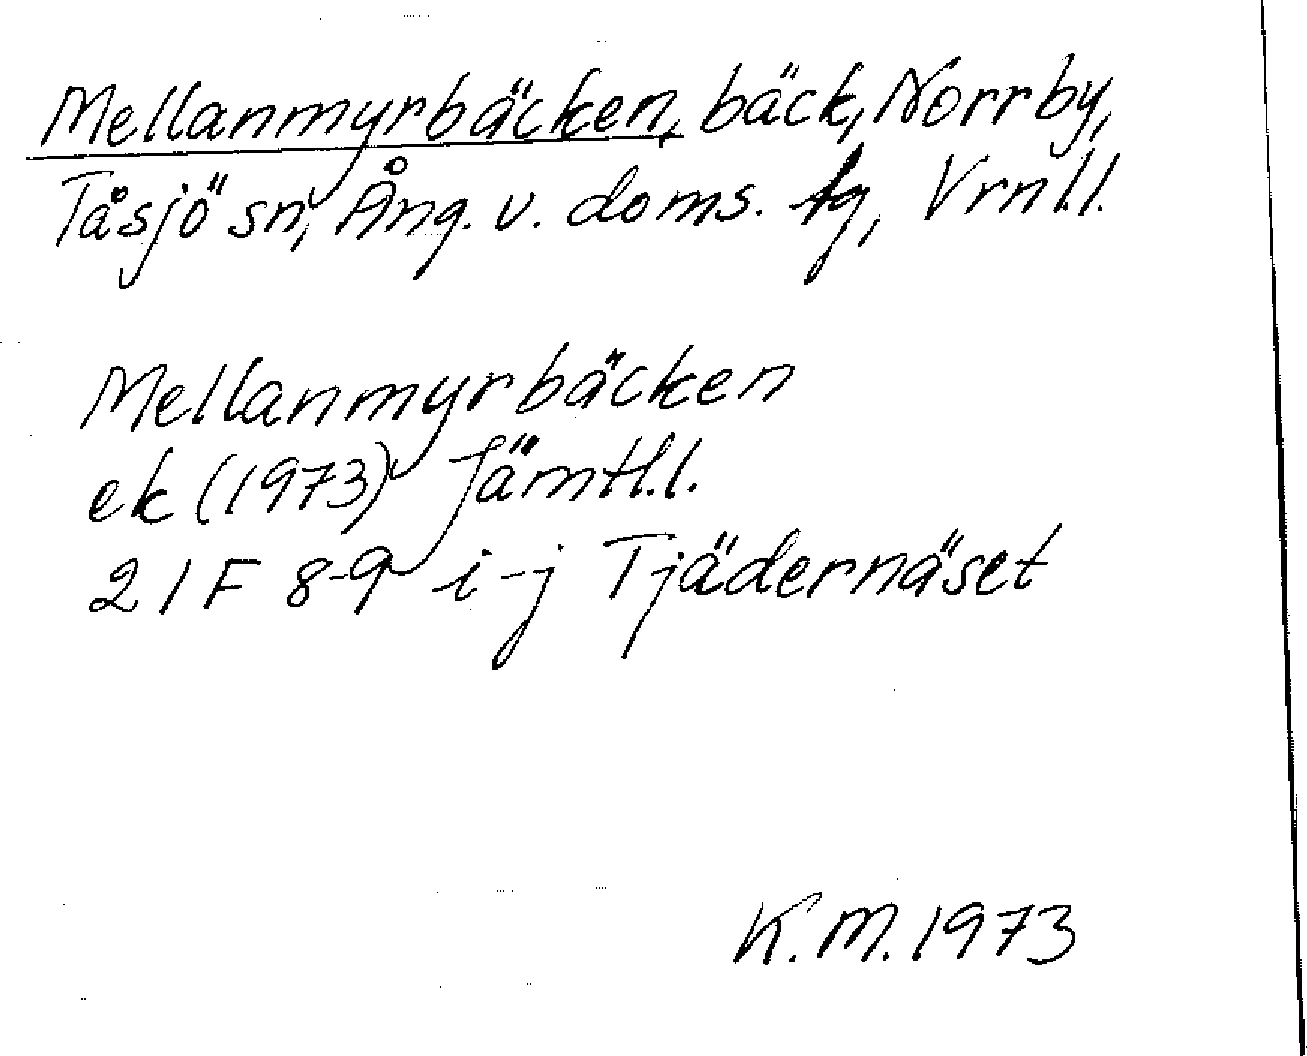 Mellanmyrbäcken, bäck, Norrby,
Tåsjö sn, Ång. v. doms. tg, Vrnl.l.
Mellanmyrbäcken
ek (1973) Jämtl.l.
21F 8-9 i-j Tjädernäset
K.M. 1973